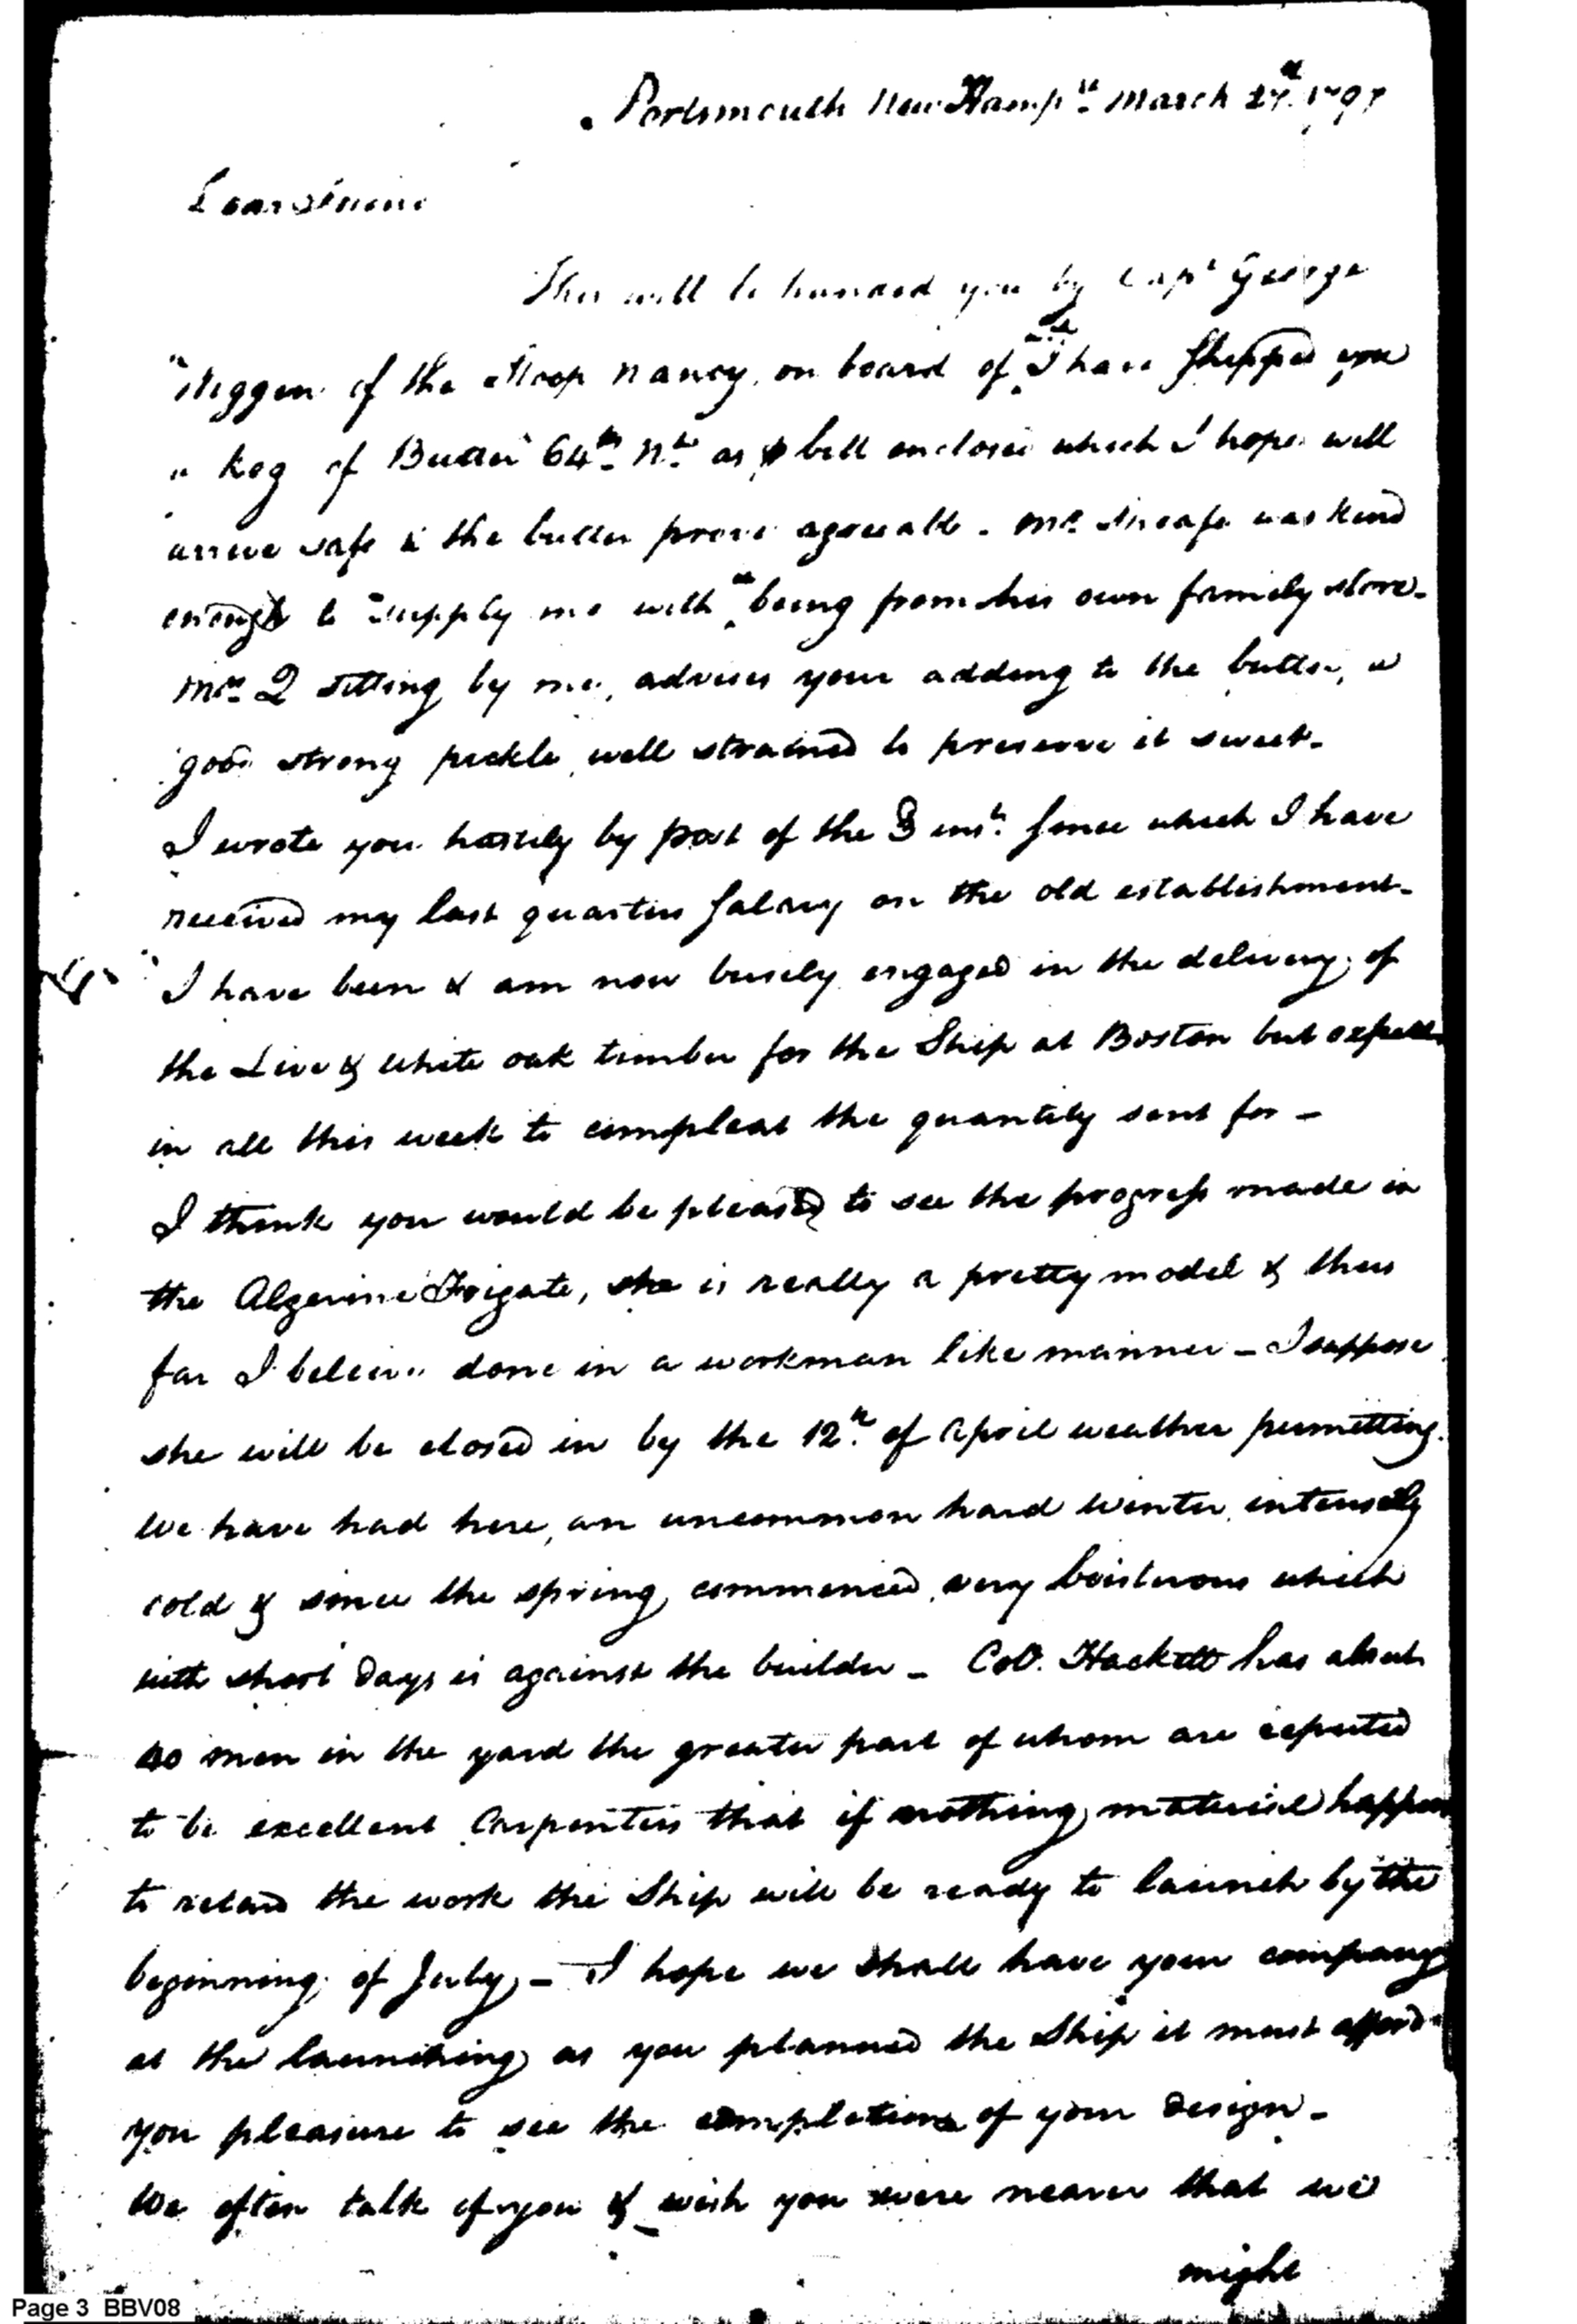 Portsmouth New Hampr. March 27th. 1797
Dear Friend
This will be handed you by Capt George
of the Sloop Nancy, on board of I have shipped you
a keg of Butter 64lb Nt. as bill enclosed which I hope will
arrive safe & the butter prove agreeable. Mr. was kind
enough to supply me with being from his own family store.
Mrs. Q sitting by me, advises your adding to the butter, a
good strong pickle well strained to preserve it sweet.
I wrote you hastily by post of the 3 inst. since which I have
received my last quarters Salary on the old establishment.
I have been & am now busily engaged in the delivery of
the Live & White oak timber for the Ship at Boston but expect
in all this week to compleat the quantity sent for —
I think you would be pleased to see the progress made in
the Algerine Frigate, she is really a pretty model & thus
far I believe done in a workman like manner — I suppose
she will be closed in by the 12th. of April weather permitting.
We have had here, an uncommon hard winter, intensely
cold & since the spring commenced, very boisterous which
with short days is against the builder — Col. Hackett has about
men in the yard the greater part of whom are reputed
to be excellent Carpenters that if nothing material happens
to retard the work the Ship will be ready to launch by the
beginning of July — I hope we shall have your company
at the launching as you planned the Ship it must afford
you pleasure to see the completion of your Design —
We often talk of you & wish you were nearer that we
might
Page 3 BBV08